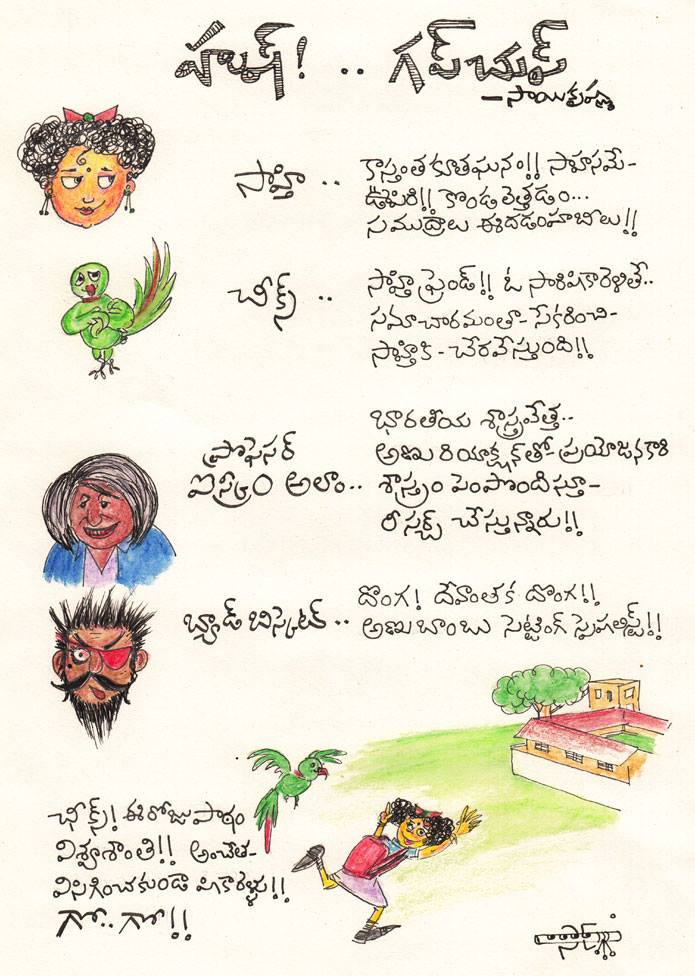 హుష్! .. గప్ చుప్
- సాయికృష్ణ
సాహితి .. కాస్తంత కూతఘనం!! సాహసమే-
ఊపిరి!! కొండలెత్తడం...
సముద్రాలు ఈదడంహబీలు!!
చీక్స్ .. సాహితి ఫ్రెండ్!! ఓ సారిపికారెళితే..
సమాచారమంతా- సేకరించి-
సాహితికి - చేరవేస్తుంది!!
ప్రొఫెసర్
ఐస్క్రీం అలాం..
భారతీయ శాస్త్రవేత్త..
అణు రియాక్షన్ తో- ప్రయోజనకారి
శాస్త్రం పెంపొందిస్తూ-
రీసర్చ్ చేస్తున్నారు!!
బ్యాడ్ బిస్కెట్ .. దొంగ! దేవాంతక దొంగ!!
అణుబాంబు సెట్టింగ్ స్పెషలిస్ట్!!
చీక్స్! ఈరోజు పాఠం
విశ్వశాంతి!! అంచేత-
విసిగించకుండా పికారెళ్ళు!!
గో.. గో!!